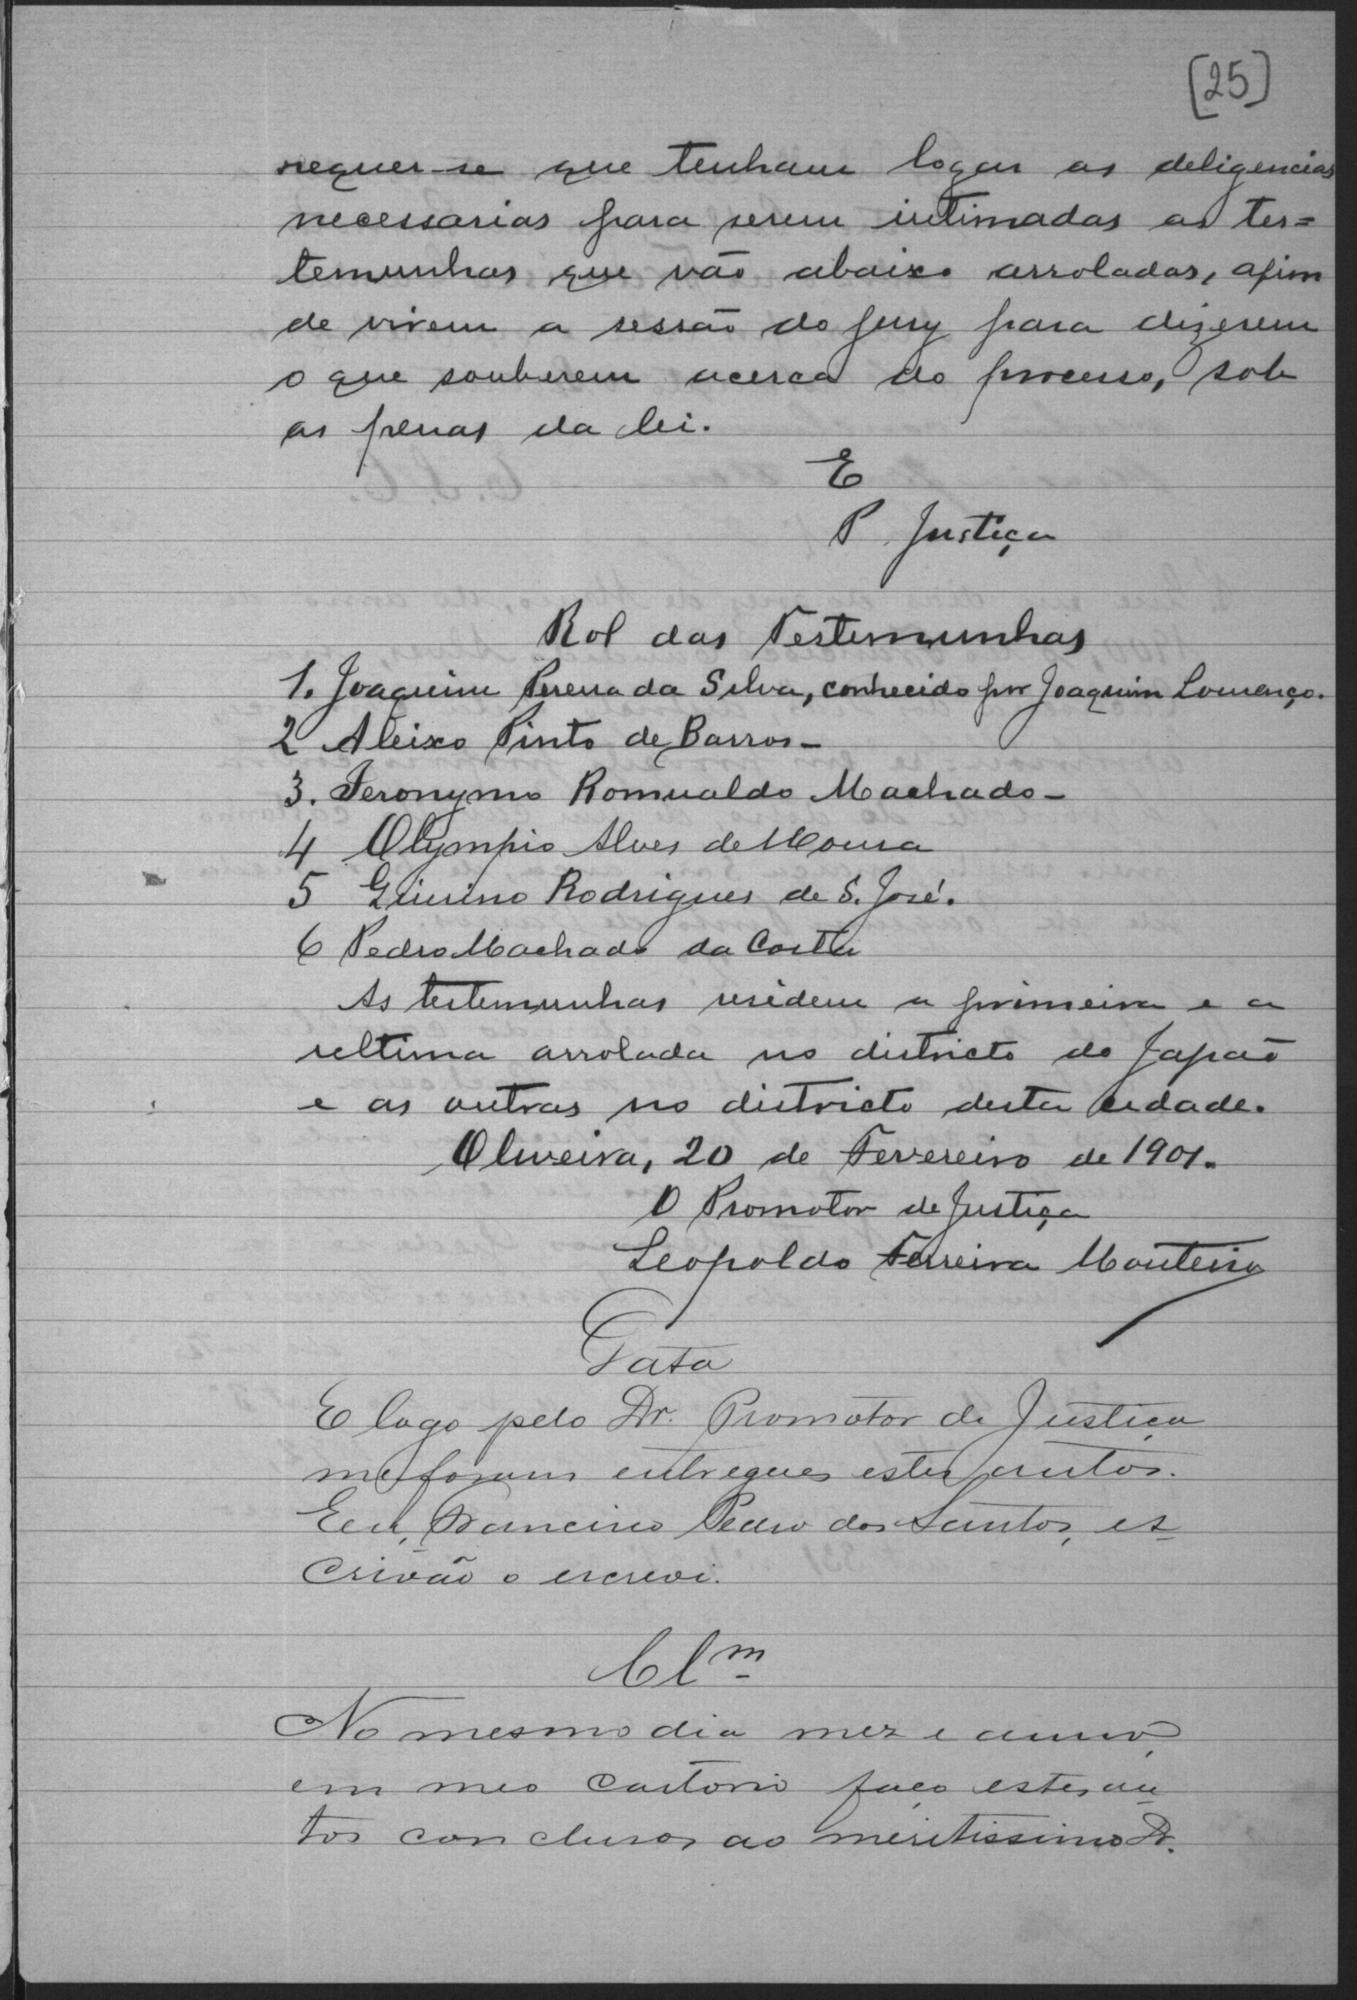 [25]
requer-se que tenham logar as deligencias
necessarias para serem intimadas as tes=
temunhas que vão abaixo arroladas, afim
de virem a sessão do jury para dizerem
o que souberem acerca do processo, sob
as penas da lei.
E
P. Justiça
Rol das Testemunhas
1. Joaquim Pereira da Silva, conhecido por Joaquim Lourenço.
2 Aleixo Pinto de Barros-
3. Jeronymo Romualdo Machado-
4 Olympio Alves de Moura
5 Rodrigues de S. José.
6 Pedro Machado da Costa
As testemunhas residem a primeira e a
ultima arrolada no districto do Japão
e as outras no districto desta cidade.
Oliveira, 20 de Fevereiro de 1901.
O Promotor de Justiça
Leopoldo Ferreira Monteiro
Data
E logo pelo Dr. Promotor de Justiça
me foram entregues estes autos.
Eeu, Francisco Pedro dos Santos, es
crivão o escrevi.
Clm
No mesmo dia mez e anno,
em meo cartorio faço estes au
tos conclusos ao meritissimo Dr.